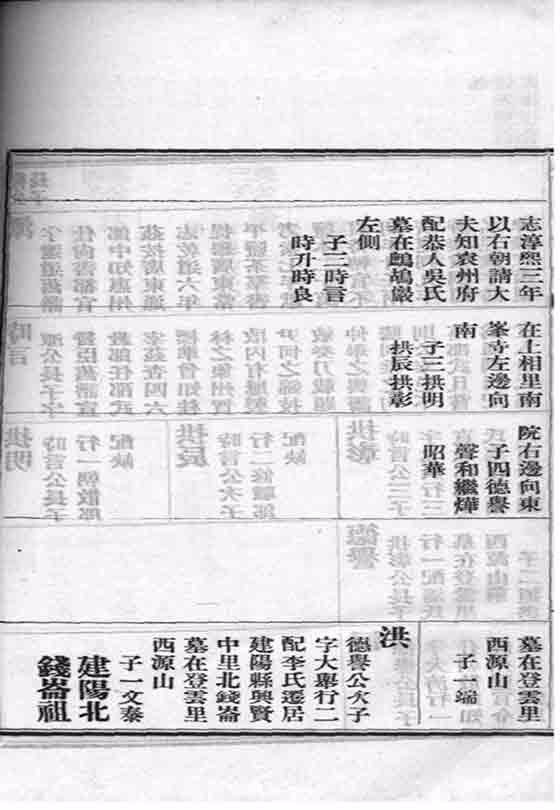 志淳熙三年
以右朝請大
夫知袁州府
配恭人吳氏
墓在鷓鴣巖
左側
子二時言
時升時良
在上相里南
峯寺左邊向
南
子三拱明
拱辰拱彰
院右邊向東
子四德譽
聲和繼燁
昭華
墓在登雲里
西源山
子一端
洪
德譽公次子
字大舉行二
配李氏遷居
建陽縣興賢
中里北錢崙
墓在登雲里
西源山
子一文泰
建陽北
錢崙祖